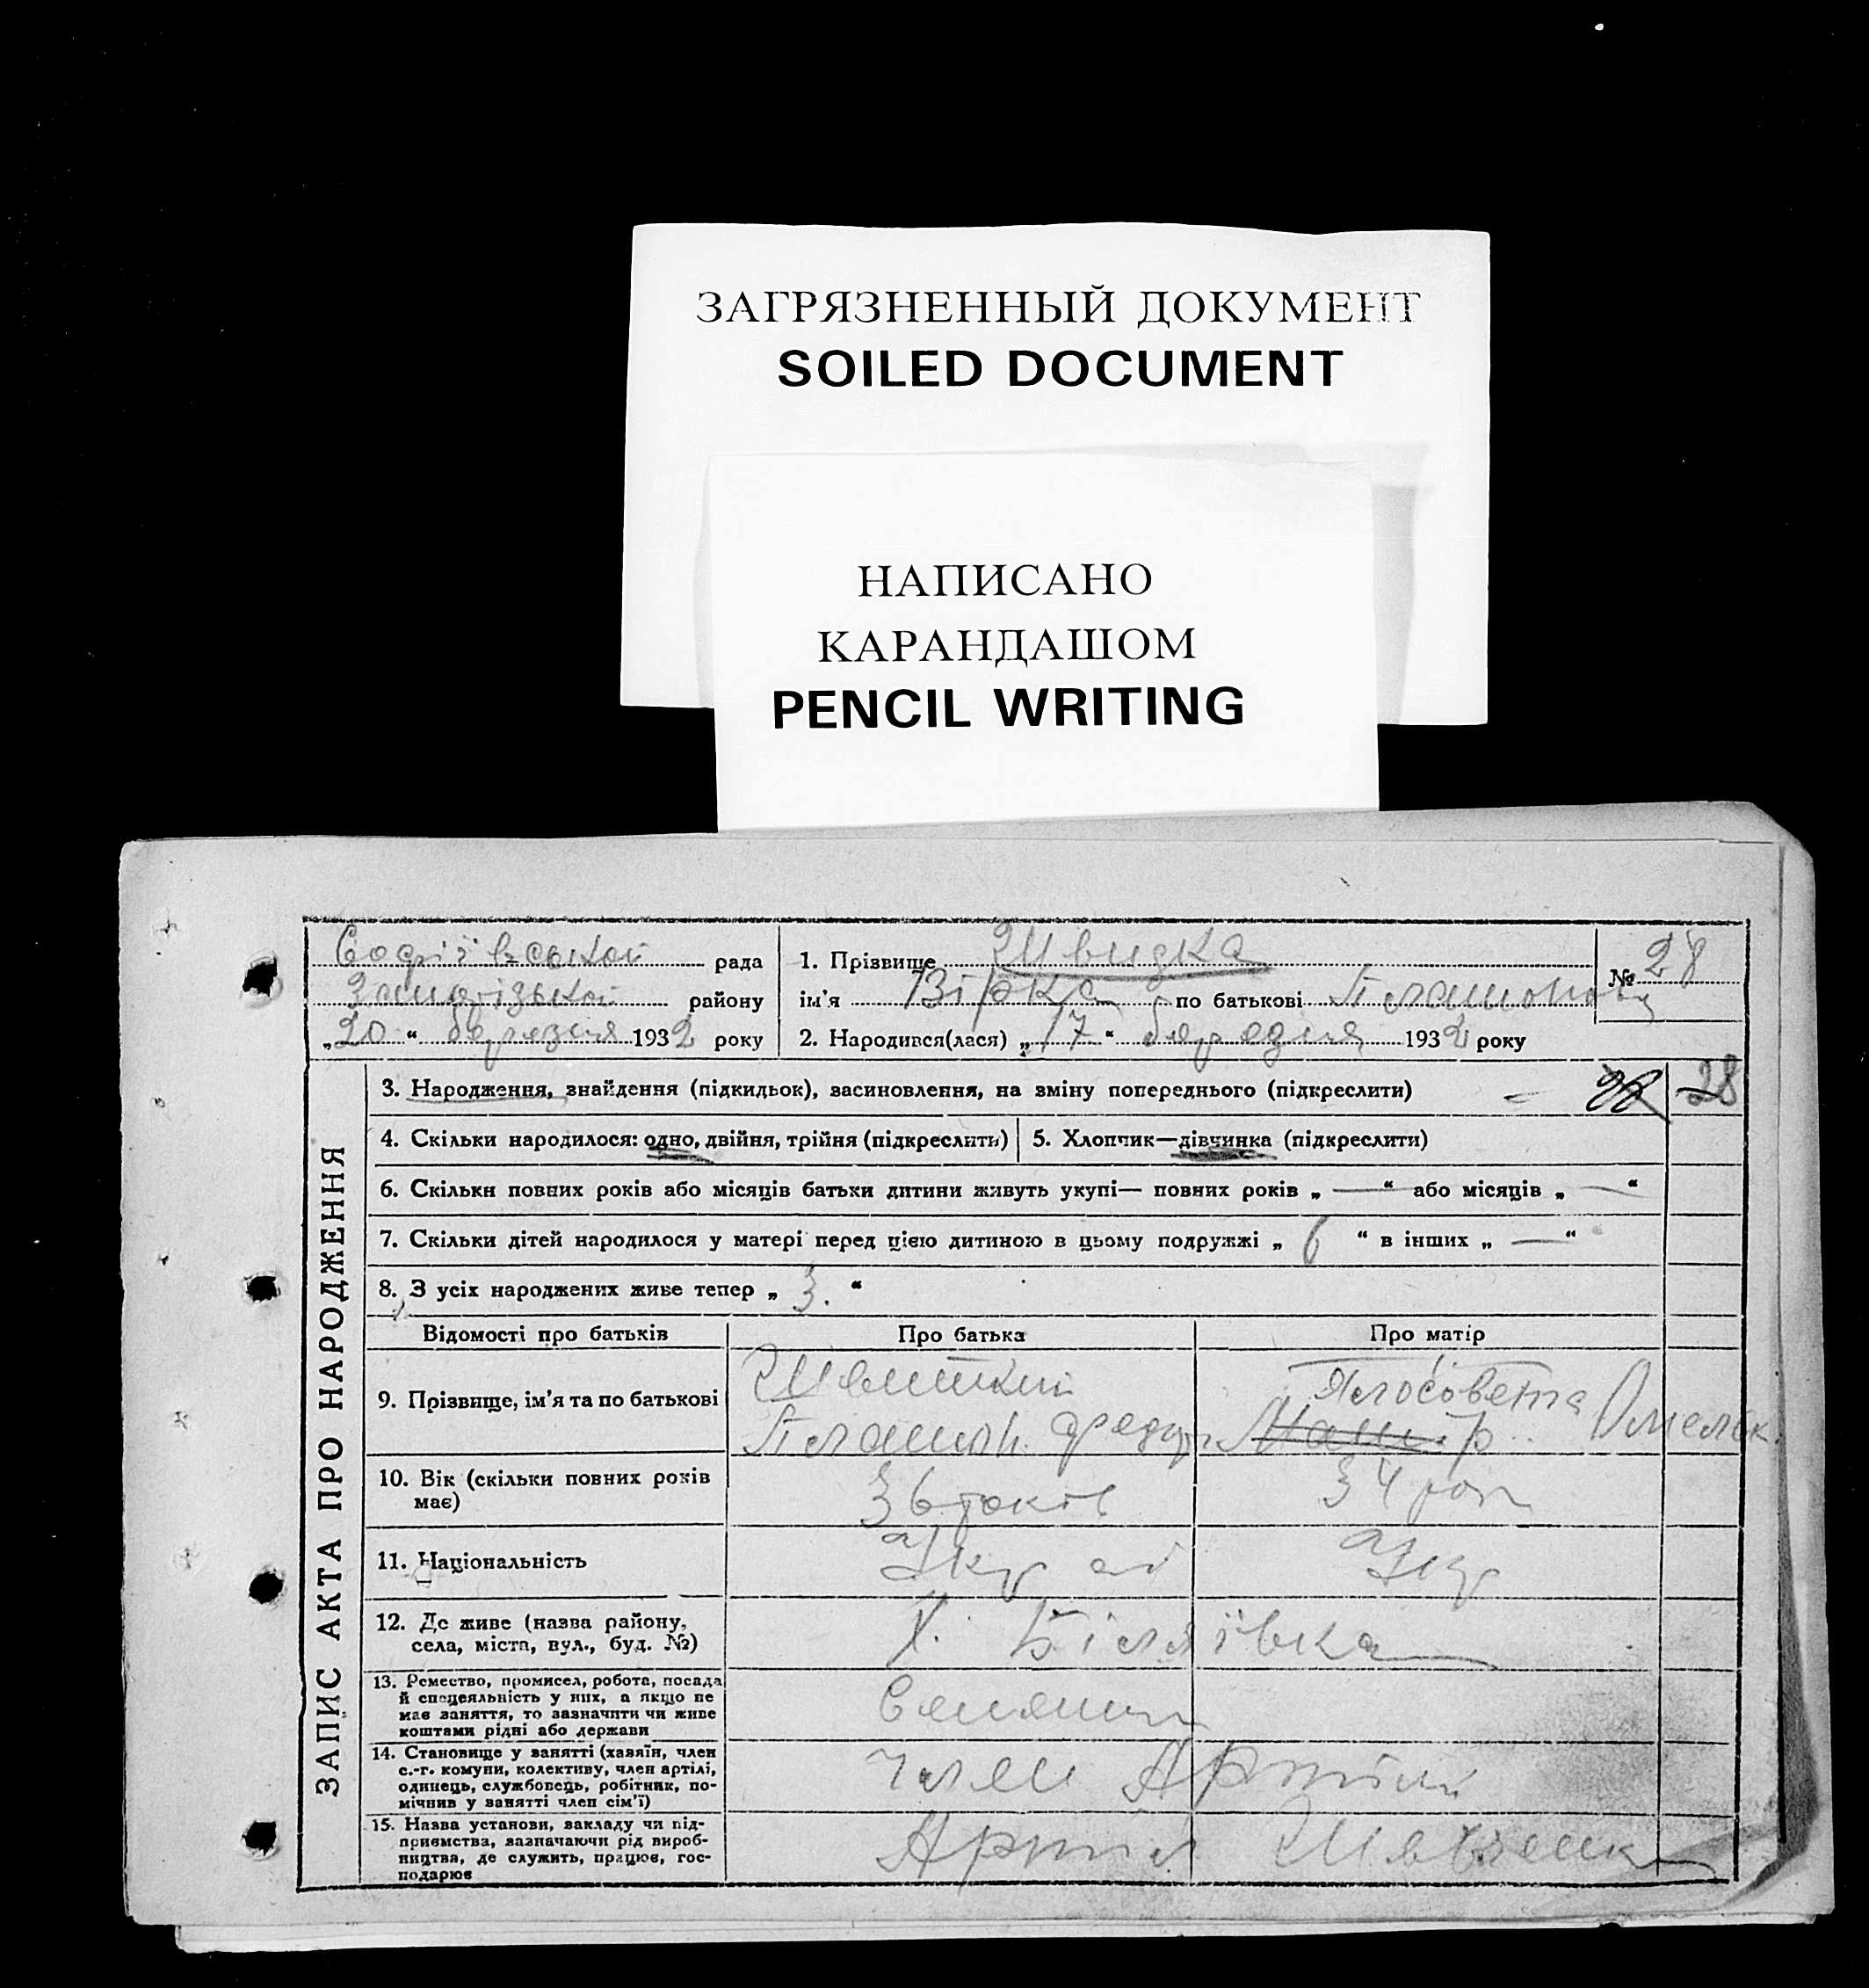 ЗАГРЯЗНЕННЫЙ ДОКУМЕНТ
SOILED DOCUMENT
НАПИСАНО
КАРАНДАШОМ
PENCIL WRITING
Софіївської рада
району
„20“ березня 1932 року
1. Прізвище Швидка
ім'я Вірка по батькові Платонов
2. Народився(лася) „17“ березня 1932 року
№ 28
ЗАПИС АКТА ПРО НАРОДЖЕННЯ
3. Народження, знайдення (підкидьок), засиновлення, на зміну попереднього (підкреслити)
28 28
4. Скільки народилося: одно, двійня, трійня (підкреслить)
5. Хлопчик—дівчинка (підкреслити)
6. Скільки повних років або місяців батьки дитини живуть укупі— повних років „ — “ або місяців „ — “
7. Скільки дітей народилося у матері перед цією дитиною в цьому подружжі „ 6 “ в інших „ — “
8. З усіх народжених живе тепер „ 3. “
Відомості про батьків
Про батька
Про матір
9. Прізвище, ім'я та по батькові
Швиткий
Платон Федор
Ялосовета Омельк.
10. Вік (скільки повних років має)
36 років
34 рок
11. Національність
Укр
Укр
12. Де живе (назва району, села, міста, вул., буд. №)
Х. Біляївка
13. Ремество, промисел, робота, посада
й спецеяльність у них, а якщо не
має заняття, то зазначити чи живе
коштами рідні або держави
Селянин
14. Становище у занятті (хазяїн, член
с.-г. комуни, колективу, член артілі,
одинець, службовець, робітник, по-
мічнив у занятті член сім'ї)
член Артілі
15. Назва установи, закладу чи під-
приємства, зазначаючи рід вироб-
ництва, де служить, працює, гос-
подарює
Артіл Шевченк